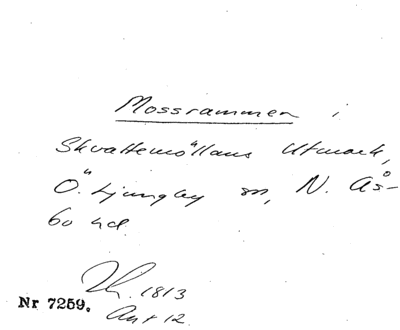 Mossrammen i
Skvattemöllans Utmark,
Ö. Ljungby sn, N. Ås-
bo hd
1813
Akt 12
Nr 7259.